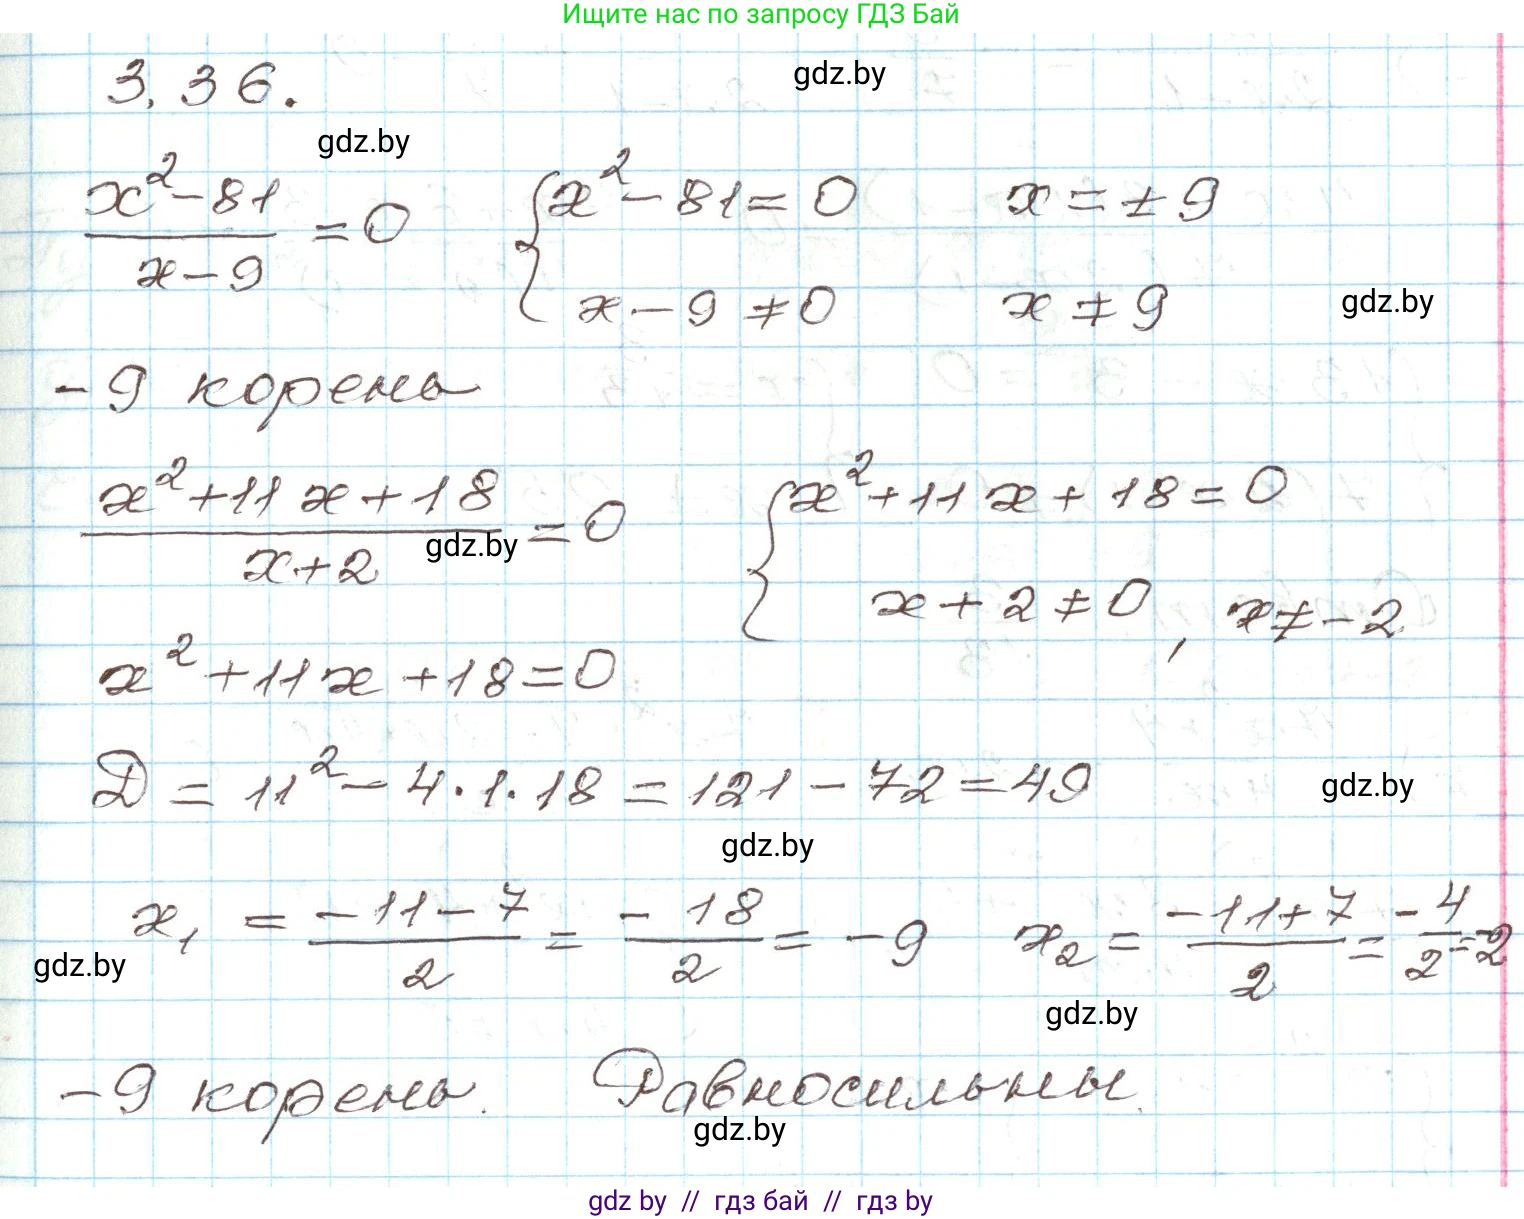 Ищите нас по запросу ГДЗ Бай
3.36.
gdz.by
gdz.by
x²-81/x-9 = 0 { x²-81=0 x=±9
x-9≠0 x≠9
gdz.by
-9 корень
x²+11x+18/x+2 = 0 { x²+11x+18=0
gdz.by
x+2≠0, x≠-2
x²+11x+18=0
D = 11²-4·1·18 = 121-72=49
gdz.by
gdz.by
x₁ = -11-7/2 = -18/2 = -9 x₂ = -11+7/2 = -4/2 = -2
gdz.by
gdz.by
-9 корень. Равносильны.
gdz.by
gdz by // гдз бай // гдз by